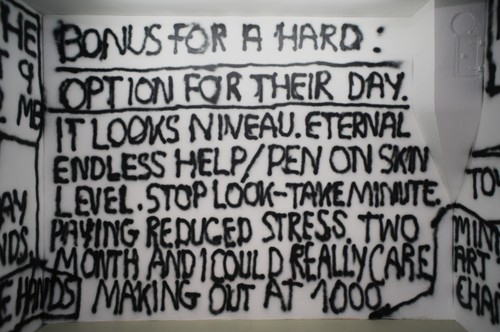 BONUS FOR A HARD:
OPTION FOR THEIR DAY.
IT LOOKS NIVEAU. ETERNAL
ENDLESS HELP/PEN ON SKIN
LEVEL. STOP LOOK-TAKE MINUTE.
PAYING REDUCED STRESS. TWO
MONTH AND I COULD REALLY CARE
MAKING OUT AT 1000
HE
9
ME
AY
NDS.
E HANDS
TO
MIN
ART
CHA